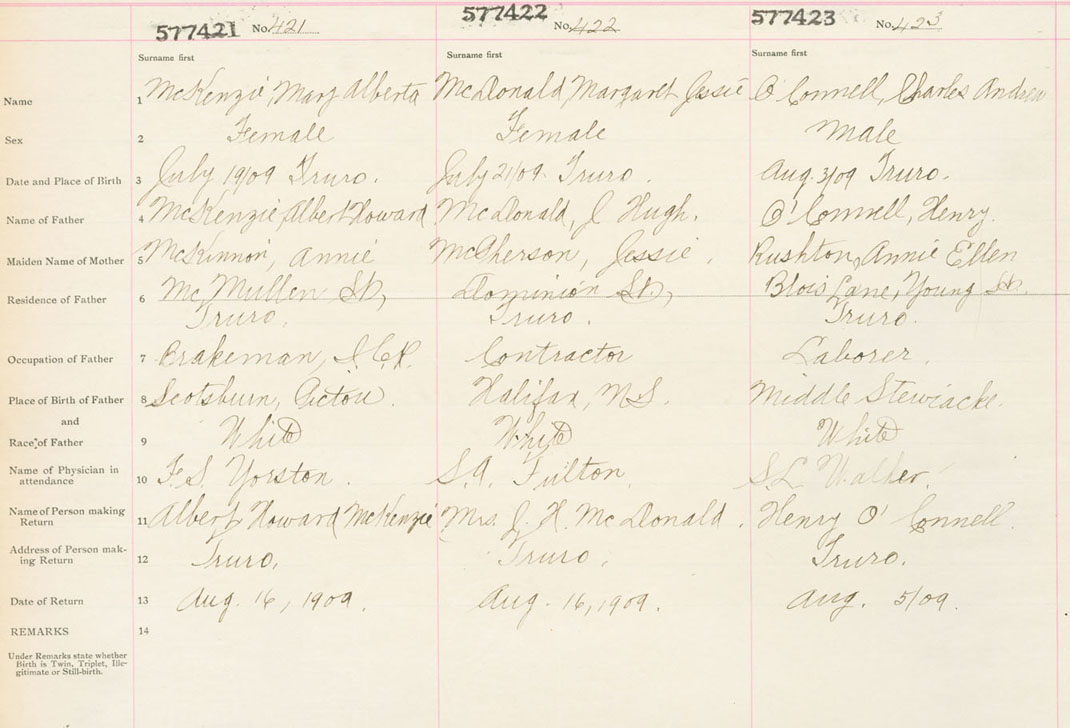 577421 No. 421 577422 No. 422 577423 No. 423
Surname first Surname first Surname first
Name 1 McKenzie, Mary Alberta McDonald, Margaret Jessie O'Connell, Charles Andrew
Sex 2 Female Female Male
Date and Place of Birth 3 July 19/09 Truro. July 21/09 Truro. Aug 3/09 Truro.
Name of Father 4 McKenzie, Albert Howard McDonald, J Hugh. O'Connell, Henry
Maiden Name of Mother 5 McKinnon, Annie McPherson, Jessie. Rushton, Annie Ellen
Residence of Father 6 McMullen St, Dominion St, Blois Lane, Young St.
Truro. Truro. Truro.
Occupation of Father 7 Brakeman, I.C.R. Contractor Laborer.
Place of Birth of Father 8 Scotsburn, Pictou. Halifax, N.S. Middle Stewiacke.
and
Race of Father 9 White White White
Name of Physician in
attendance 10 F. S. Yorston. S. A. Fulton. S. L. Walker.
Name of Person making
Return 11 Albert Howard McKenzie Mrs. J. H. McDonald. Henry O'Connell.
Address of Person mak-
ing Return 12 Truro. Truro. Truro.
Date of Return 13 Aug. 16, 1909. Aug. 16, 1909. Aug. 5/09.
REMARKS 14
Under Remarks state whether
Birth is Twin, Triplet, Ille-
gitimate or Still-birth.